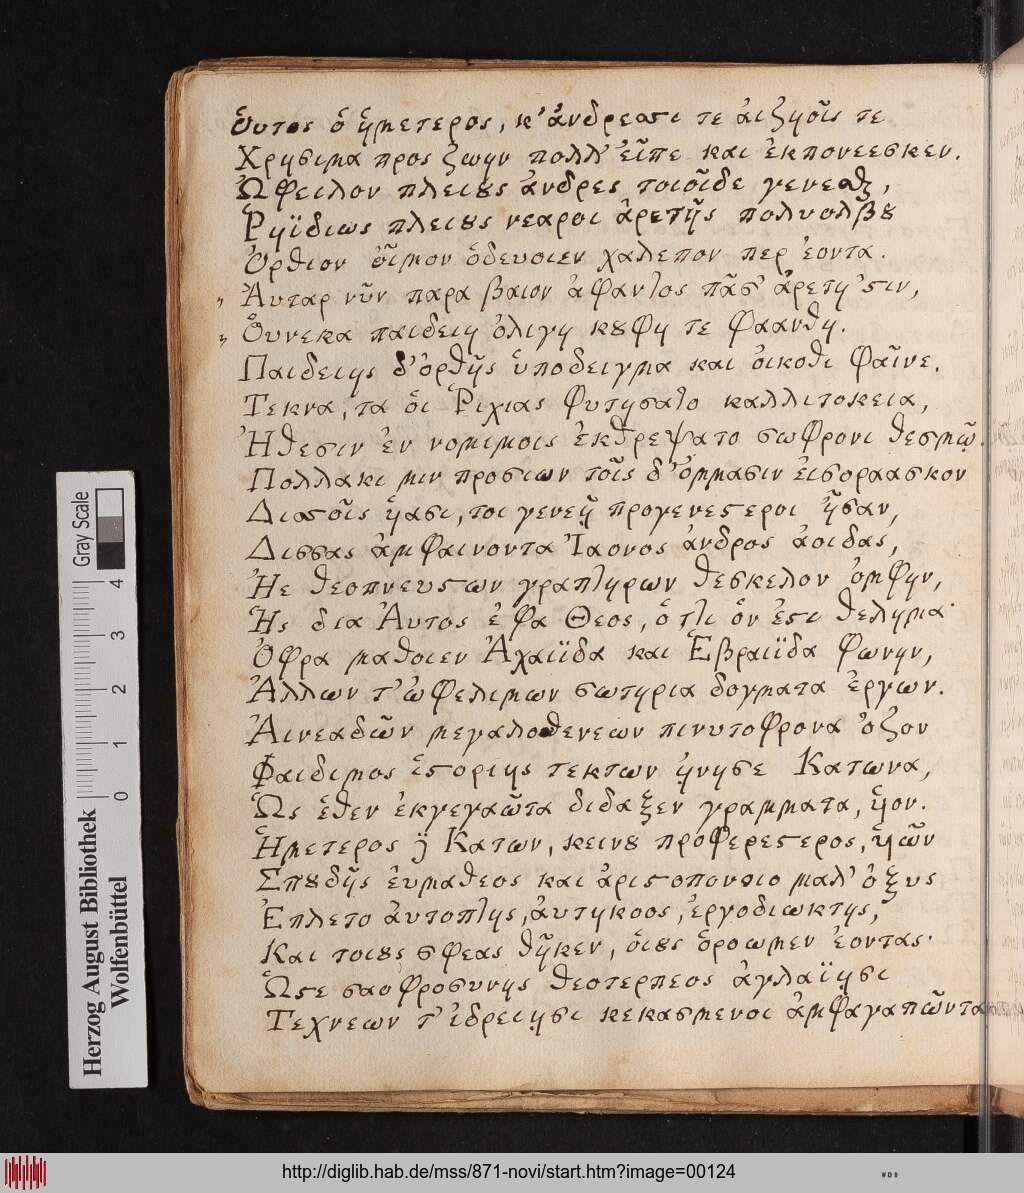 Ὁυτος ὁ ἡμετερος, κ' ἀνδρεασι τε ἀιζηοῖς τε
Χρησιμα προς ζωην πολλ' εἶπε και ἐκπονεεσκεν.
Ὠφειλον πλειȣς ἀνδρες τοιοῖδε γενεαζ,
Ῥηϊδιως πλειȣς νεαροι ἀρετῆς πολυολβȣ
Ὀρθιον οἶμον ὁδευοιεν χαλεπον περ ἐοντα.
„ Ἀυταρ νῦν παρα βαιον ἀφαντος πᾶσ' ἀρετη 'στιν,
„ Ὁυνεκα παιδειη ὀλιγη κȣφη τε φαανθη.
Παιδειης δ' ὀρθῆς ὑποδειγμα και ὀικοθι φαῖνε.
Τεκνα, τα ὁι Ῥιχιας φυτησατο καλλιτοκεια,
Ἠθεσιν ἐν νομιμοις ἐκθρεψατο σωφρονι θεσμῷ.
Πολλακι μιν προσιων τοῖς δ' ὀμμασιν ἐισοραασκον
Δισσοῖς ἡασι, τοι γενεῇ προγενεστεροι ἦσαν,
Δισσας ἀμφαινοντα Ἰαονος ἀνδρος ἀοιδας,
Ἠε θεοπνευστων γραπτηρων θεσκελον ὀμφην,
Ἧς δια Ἀυτος ἐφα Θεος, ὁ τι ὁν ἐστι θελημα·
Ὀφρα μαθοιεν Ἀχαιϊδα και Ἑβραιϊδα φωνην,
Ἀλλων τ' ὠφελιμων σωτηρια δογματα ἐργων.
Ἀινεαδῶν μεγαλοσθενεων πινυτοφρονα ὀζον
Φαιδιμος ἱστοριης τεκτων ᾐνησε Κατωνα,
Ὡς ἑθεν ἐκγεγαῶτα διδαξεν γραμματα, ἡον.
Ἡμετερος ϳ Κατων, κεινȣ προφερεστερος, ἡῶν
Σπȣδῆς ἐυμαθεος και ἀριστοπονοιο μαλ' ὀξυς
Ἐπλετο ἀυτοπτης, ἀυτηκοος, ἐργοδιωκτης,
Και τοιȣς σφεας θῆκεν, ὁιȣς ὁροωμεν ἐοντας·
Ὡστε σαοφροσυνης θεοτερπεος ἀγλαϊησι
Τεχνεων τ' ἰδρειῃσι κεκασμενοι ἀμφαγαπῶνται
Gray Scale
4
3
2
1
0
Herzog August Bibliothek
Wolfenbüttel
http://diglib.hab.de/mss/871-novi/start.htm?image=00124
WDB